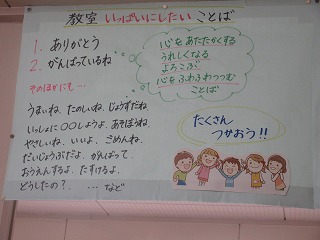 教室 いっぱいにしたい ことば
1. ありがとう
2. がんばっているね
そのほかにも…
うまいね、たのしいね、じょうずだね、
いっしょに〇〇しようよ、あそぼうね、
やさしいね、いいよ、ごめんね、
だいじょうぶだよ、がんばって、
おうえんするよ、たすけるよ、
どうしたの？、…など
心をあたたかくする
うれしくなる
よろこぶ
心をふわふわつつむ
ことば
たくさん
つかおう!!